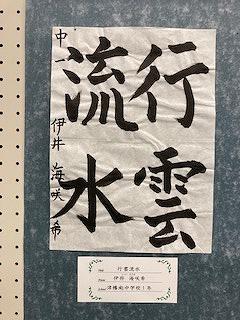 行雲
流水
中一 伊井 海咲希
行雲流水
伊井 海咲希
津幡南中学校1年